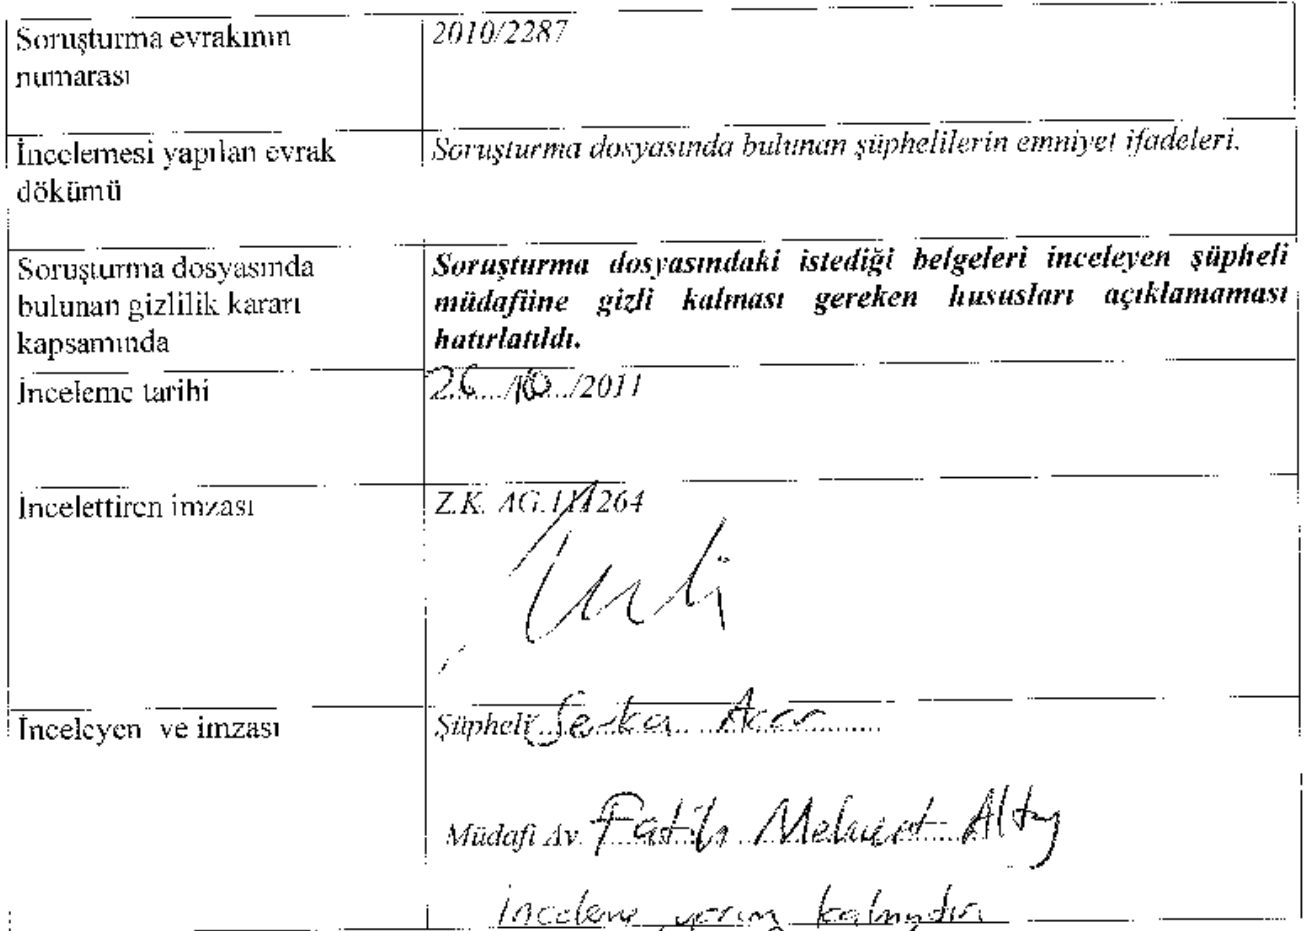 Soruşturma evrakının
numarası
2010/2287
İncelemesi yapılan evrak
dökümü
Soruşturma dosyasında bulunan şüphelilerin emniyet ifadeleri.
Soruşturma dosyasında
bulunan gizlilik kararı
kapsamında
Soruşturma dosyasındaki istediği belgeleri inceleyen şüpheli
müdafiine gizli kalması gereken hususları açıklamaması
hatırlatıldı.
İnceleme tarihi
26..../10.../2011
İncelettiren imzası
Z.K. AG.111264
İnceleyen ve imzası
Şüpheli Acar
Müdafi Av. Fatih Mehmet
İnceleme yarım kalmıştır